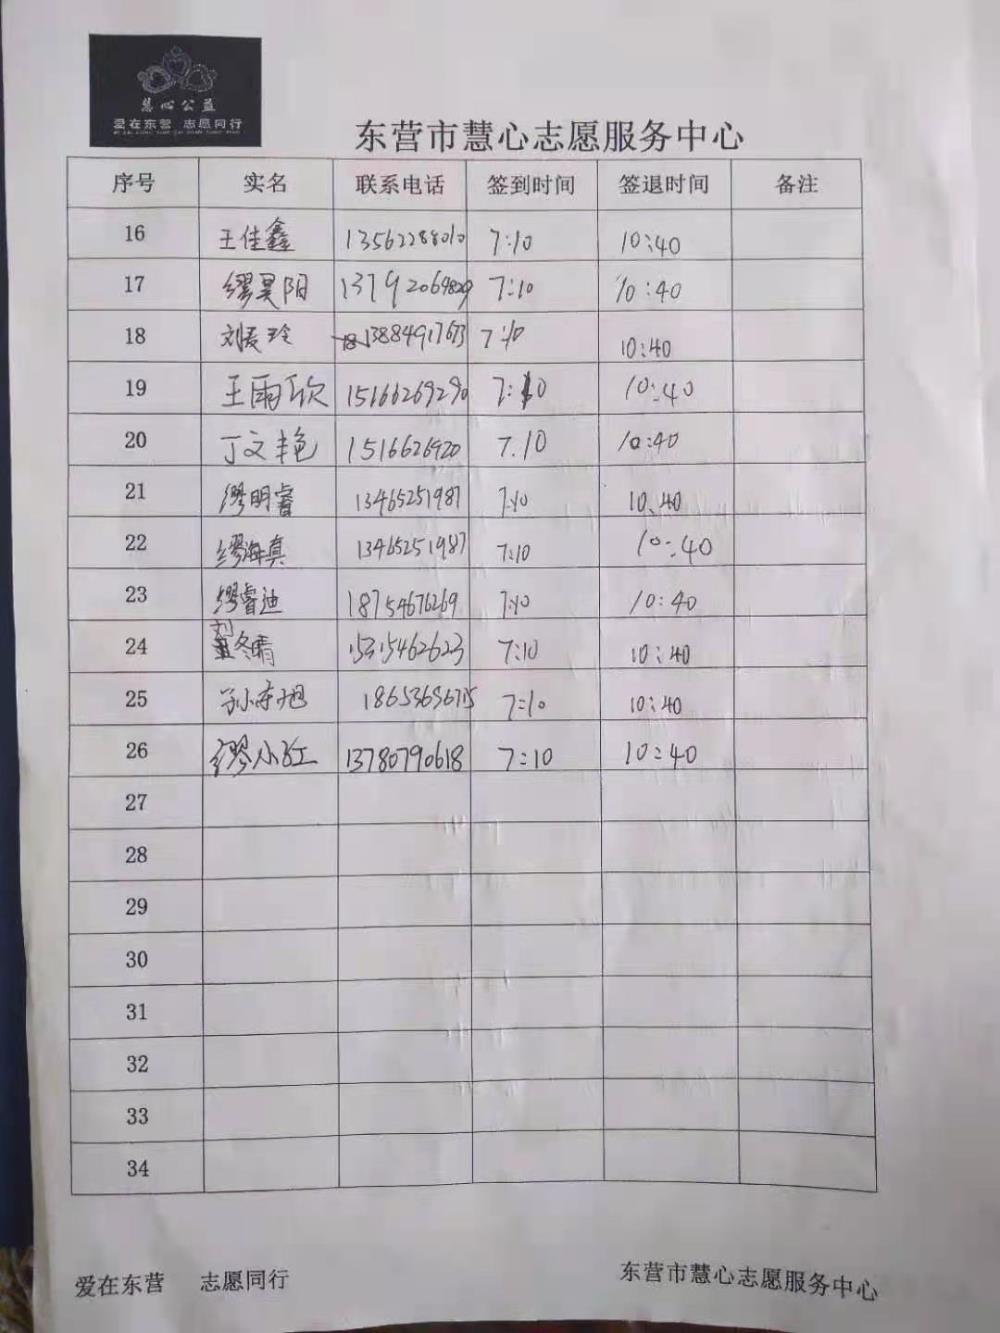 慧心公益
爱在东营 志愿同行
东营市慧心志愿服务中心
序号 实名 联系电话 签到时间 签退时间 备注
16 王佳鑫 13562288010 7:10 10:40
17 缪昊阳 13792069829 7:10 10:40
18 刘爱玲 13884917673 7:10 10:40
19 王雨欣 15166269290 7:10 10:40
20 丁文艳 1516626920 7.10 10:40
21 缪明睿 13465251987 7:10 10:40
22 缪海真 13465251987 7:10 10:40
23 缪睿迪 18754676269 7:10 10:40
24 冬晴 15315462623 7:10 10:40
25 孙东旭 18653696715 7:10 10:40
26 缪小红 13780790618 7:10 10:40
27
28
29
30
31
32
33
34
爱在东营 志愿同行 东营市慧心志愿服务中心